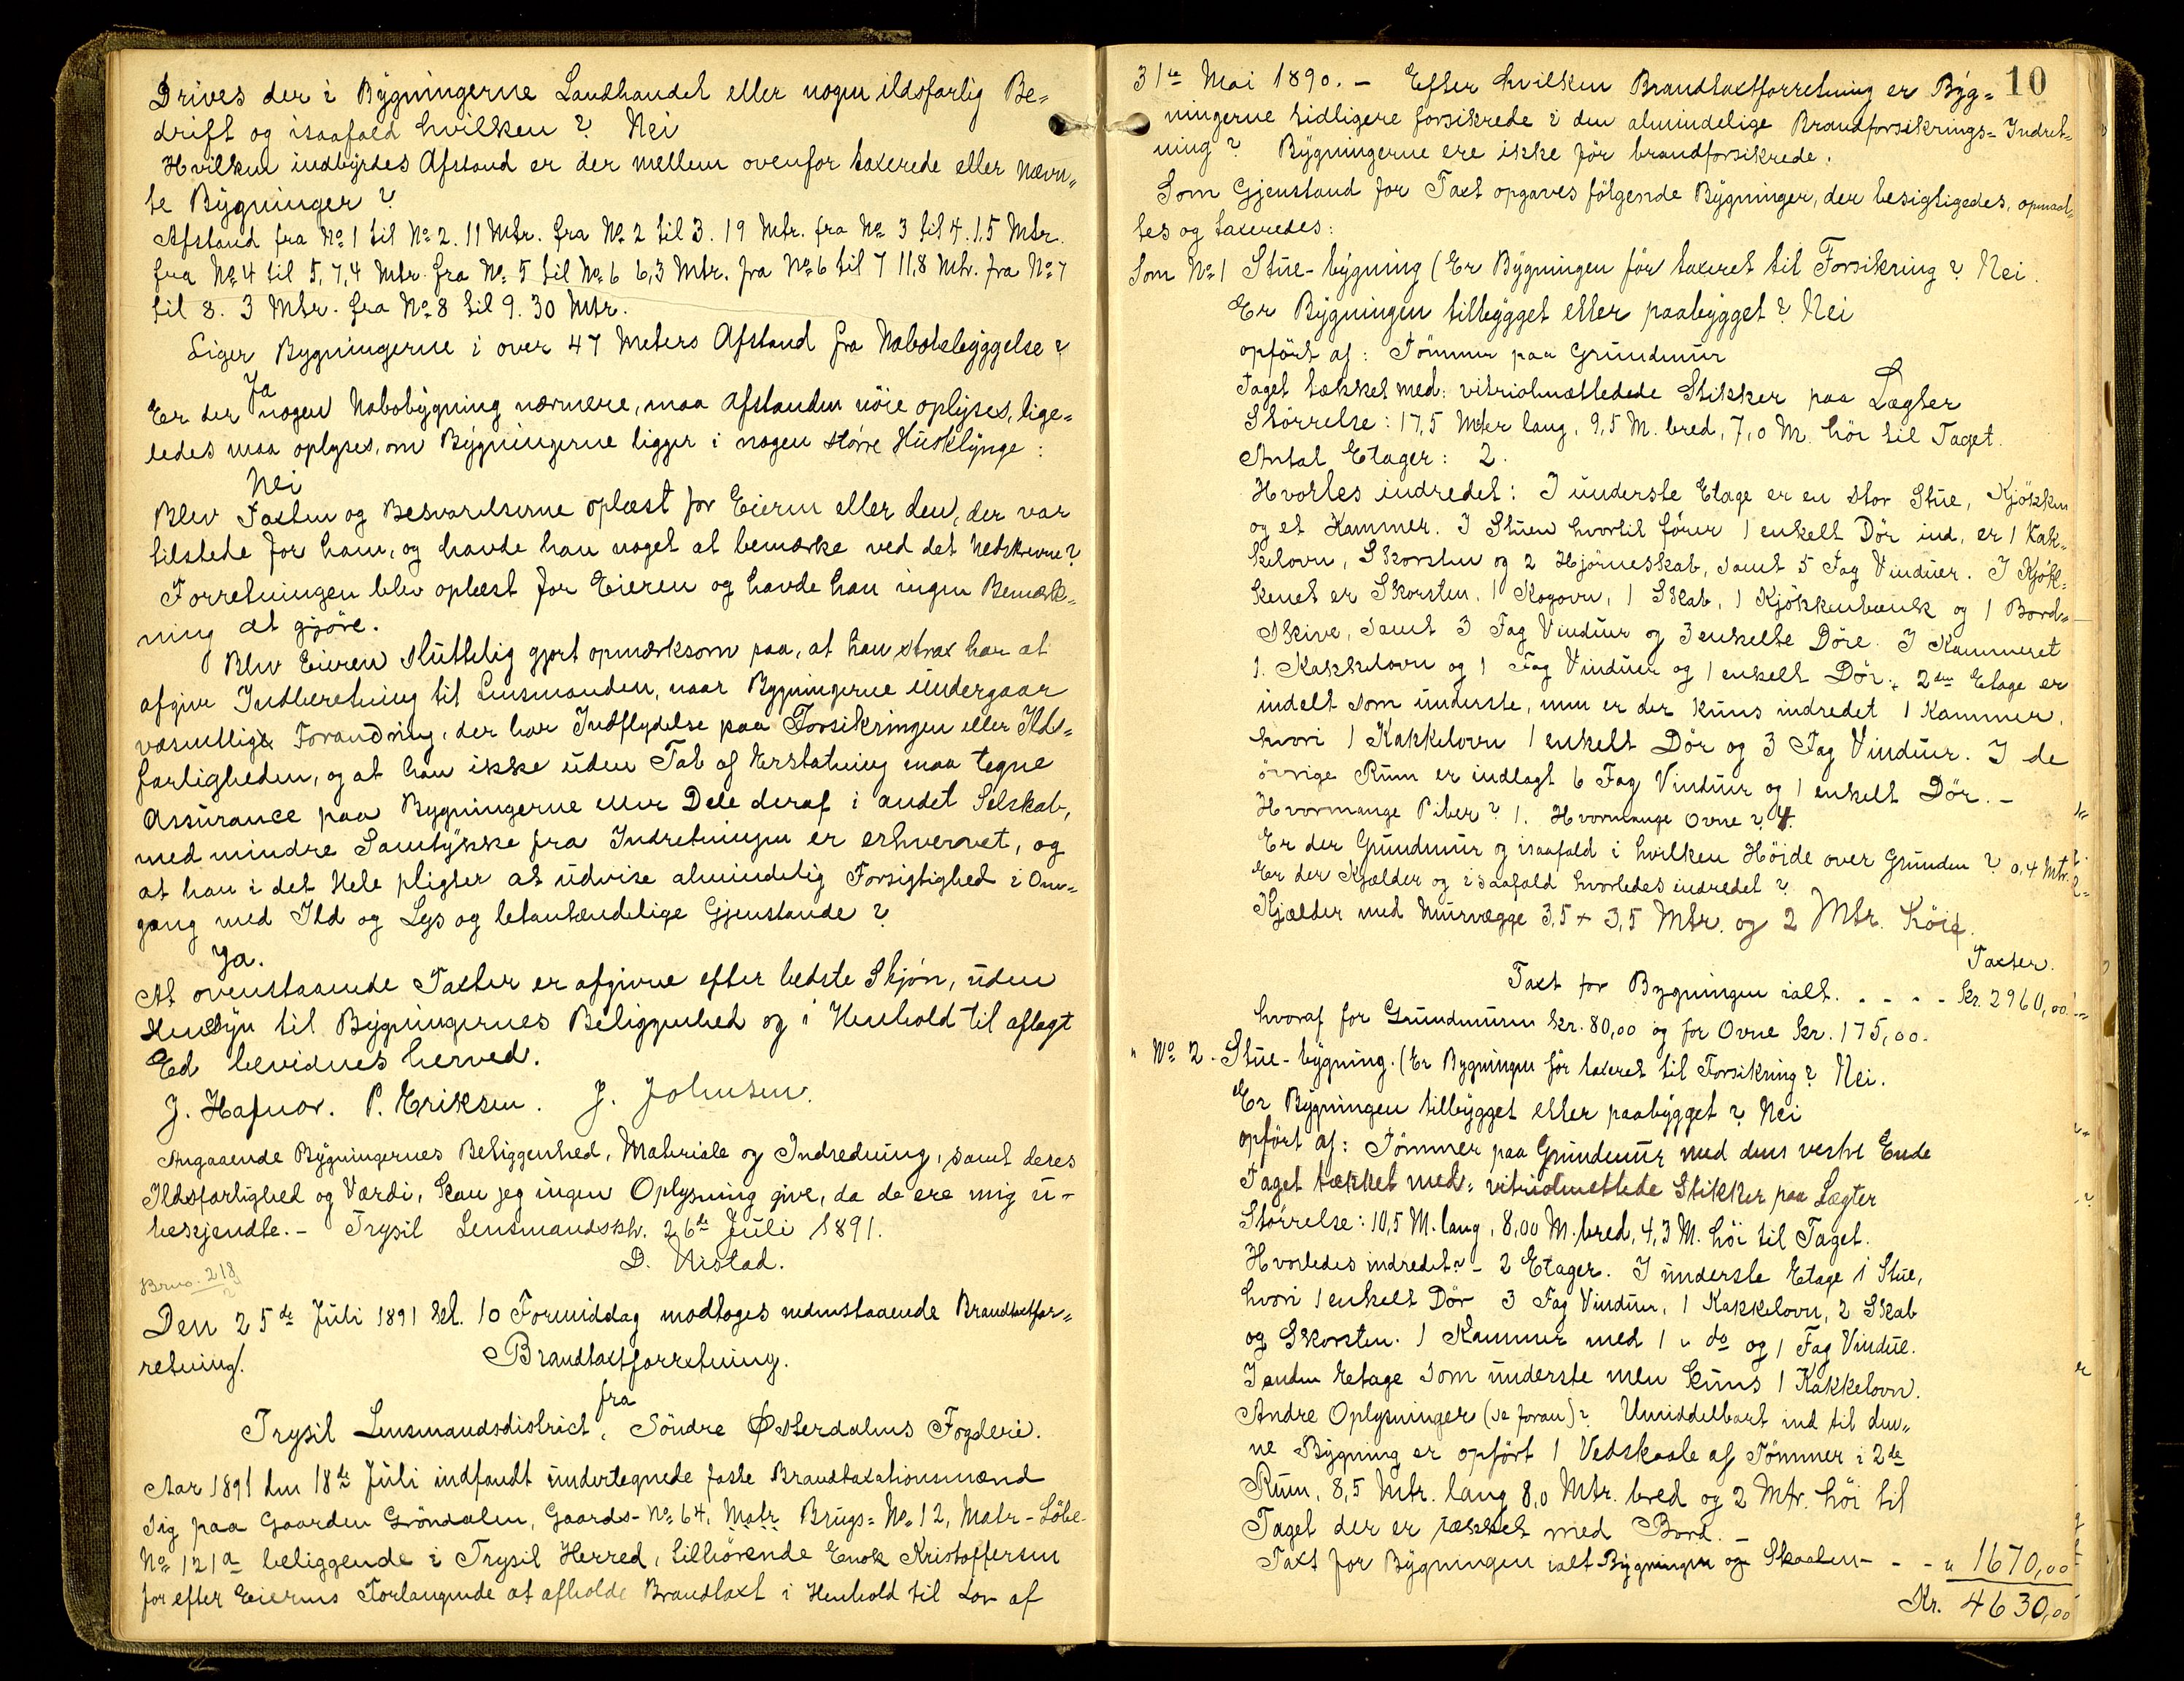 Drives der i Bygningerne Landhandel eller nogen ildsfarlig Be=
drift og isaafald hvilken? Nei
Hvilken indbyrdes Afstand er der mellem ovenfor taxerede eller nævn„
te Bygninger?
Afstand fra No 1 til No 2. 11 Mtr. fra No 2 til 3. 19 Mtr. fra No 3 til 4. 1.5 Mtr.
fra No 4 til 5, 7,4 Mtr. fra No 5 til No 6 6,3 Mtr. fra No 6 til 7 11,8 Mtr. fra No 7
til 8. 3 Mtr. fra No 8 til 9. 30 Mtr.
Liger Bygningerne i over 47 Meters Afstand fra Nabobebyggelse?
Ja
Er der nogen Nabobygning nærmere, maa Afstanden nöie oplyses, lige=
ledes maa oplyses, om Bygningerne ligger i nogen större Husklynge:
Nei
Blev Taxten og Besvarelserne oplæst for Eieren eller den, der var
tilstede for ham, og havde han noget at bemærke ved det Nedskrevne?
Forretningen blev oplæst for Eieren og havde han ingen Bemærk„
ning at gjöre.
Blev Eieren sluttelig gjort opmærksom paa, at han strax har at
afgive Indberetning til Lensmanden, naar Bygningerne undergaar
væsentlig Forandring, der har Indflydelse paa Forsikringen eller Ilds=
farligheden, og at han ikke uden Tab af Erstatning maa tegne
Assurance paa Bygningerne eller Dele deraf i andet Selskab,
med mindre Samtykke fra Indretningen er erhvervet, og
at han i det Hele pligter at udvise almindelig Forsigtighed i Om„
gang med Ild og Lys og letantændelige Gjenstande?
Ja.
At ovenstaaende Taxter er afgivne efter bedste Skjön, uden
Hensyn til Bygningernes Beliggenhed og i Henhold til aflagt
Ed bevidnes herved.
J. Hafnor. P. Eriksen. J. Johnsen.
Angaaende Bygningernes Beliggenhed, Materiale og Indredning, samt deres
Ildsfarlighed og Værdi, kan jeg ingen Oplysning give, da de ere mig u-
bekjendte. - Trysil Lensmandskt. 26de Juli 1891.
D. Nistad.
Brno. 218
Den 25de Juli 1891 Kl. 10 Formiddag modtoges nedenstaaende Brandtaxtfor„
retning.
Brandtaxtforretning.
fra
Trysil Lensmandsdistrict, Söndre Østerdalens Fogderi.
Aar 1891 den 18de Juli indfandt undertegnede faste Brandtaxationsmænd
sig paa Gaarden Gröndalen, Gaards-No 64, Matr Brugs= No 12, Matr-Löbe-
No 121a beliggende i Trysil Herred, tilhörende Enok Kristoffersen
for efter Eierens Forlangende at afholde Brandtaxt i Henhold til Lov af
10
31te Mai 1890. - Efter hvilken Brandtaxtforretning er Byg=
ningerne tidligere forsikrede i den almindelige Brandforsikrings= Indret=
ning? Bygningerne ere ikke för brandforsikrede.
Som Gjenstand for Taxt opgaves fölgende Bygninger, der besigtigedes, opmaal=
tes og taxeredes:
Som No 1 Stue-bygning (Er Bygningen för taxeret til Forsikring? Nei.
Er Bygningen tilbygget eller paabygget? Nei
opfört af: Tömmer paa Grundmur
Taget tækket med: vitriolmættedede Stikker paa Lægter
Störrelse: 17,5 Meter lang, 9,5 M. bred, 7,0 M. höi til Taget.
Antal Etager: 2.
Hvorles indredet: I underste Etage er en stor Stue, Kjökken
og et Kammer. I Stuen hvortil förer 1 enkelt Dör ind, er 1 Kak„
kelovn, Skorsten og 2 Hjörneskab, samt 5 Fag Vinduer. I Kjök„
kenet er Skorsten, 1 Kogovn, 1 Skab, 1 Kjökkenbænk og 1 Bord=
skive, samt 3 Fag Vinduer og 3 enkelte Döre. I Kammeret
1. Kakkelovn og 1 Fag Vinduer og 1 enkelt Dör. 2den Etage er
indelt som underste, men er der kuns indredet 1 Kammer,
hvori 1 Kakkelovn 1 enkelt Dör og 3 Fag Vinduer. I de
övrige Rum er indlagt 6 Fag Vinduer og 1 enkelt Dör. -
Hvormange Piber? 1. Hvormange Ovne? 4.
Er der Grundmur og isaafald i hvilken Höide over Grunden? 0,4 Mtr.
Er der Kjælder og isaafald hvorledes indredet?
Kjælder med Murvægge 3,5 + 3,5 Mtr. og 2 Mtr. höie.
Taxter.
Taxt for Bygningen ialt. - - - - Kr. 2960,00.
hvoraf for Grundmuren kr. 80,00 og for Ovne kr. 175,00.
" No 2. Stue-bygning. (Er Bygningen för taxeret til Forsikring? Nei.
Er Bygningen tilbygget eller paabygget? Nei
opfört af: Tömmer paa Grundmur med den vestre Ende
Taget tækket med: vitriolmettede Stikker paa Lægter
Störrelse: 10,5 M. lang, 8,00 M. bred, 4,3 M. höi til Taget.
Hvorledes indredet? - 2 Etager. I underste Etage 1 Stue,
hvori 1 enkelt Dör 3 Fag Vinduer, 1 Kakkelovn, 2 Skab
og Skorsten. 1 Kammer med 1 " do og 1 Fag Vindue.
I anden Etage som underste men kuns 1 Kakkelovn.
Andre Oplysninger (se foran)? Umiddelbart ind til den„
ne Bygning er opfört 1 Vedskaale af Tömmer i 2de
Rum, 8,5 Mtr. lang 8,0 Mtr. bred og 2 Mtr. höi til
Taget der er tækket med Bord. -
Taxt for Bygningen ialt Bygningen og Skaalen - - - " 1670,00
Kr. 4630,00